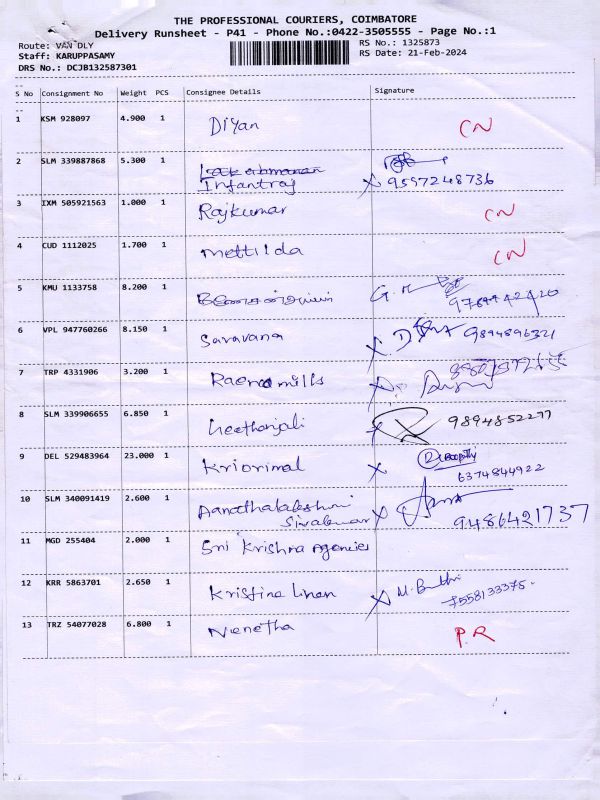 THE PROFESSIONAL COURIERS, COIMBATORE
Delivery Runsheet - P41 - Phone No.:0422-3505555 - Page No.:1
Route: VAN DLY RS No.: 1325873
Staff: KARUPPASAMY RS Date: 21-Feb-2024
DRS No.: DCJB132587301
S No Consignment No Weight PCS Consignee Details Signature
1 KSM 928097 4.900 1 Diyan CN
2 SLM 339887868 5.300 1 Infantraj X 9597248736
3 IXM 505921563 1.000 1 Rajkumar CN
4 CUD 1112025 1.700 1 Mettilda CN
5 KMU 1133758 8.200 1 G. M
6 VPL 947760266 8.150 1 Saravana X 9894896321
7 TRP 4331906 3.200 1 mills X
8 SLM 339906655 6.850 1 Geethanjali X 9894852277
9 DEL 529483964 23.000 1 X 6374844922
10 SLM 340091419 2.600 1 Sivakumar X 9486421737
11 MGD 255404 2.000 1 Sri Krishna Agencies
12 KRR 5863701 2.650 1 Kristina Linen X 7558133375
13 TRZ 54077028 6.800 1 P.R